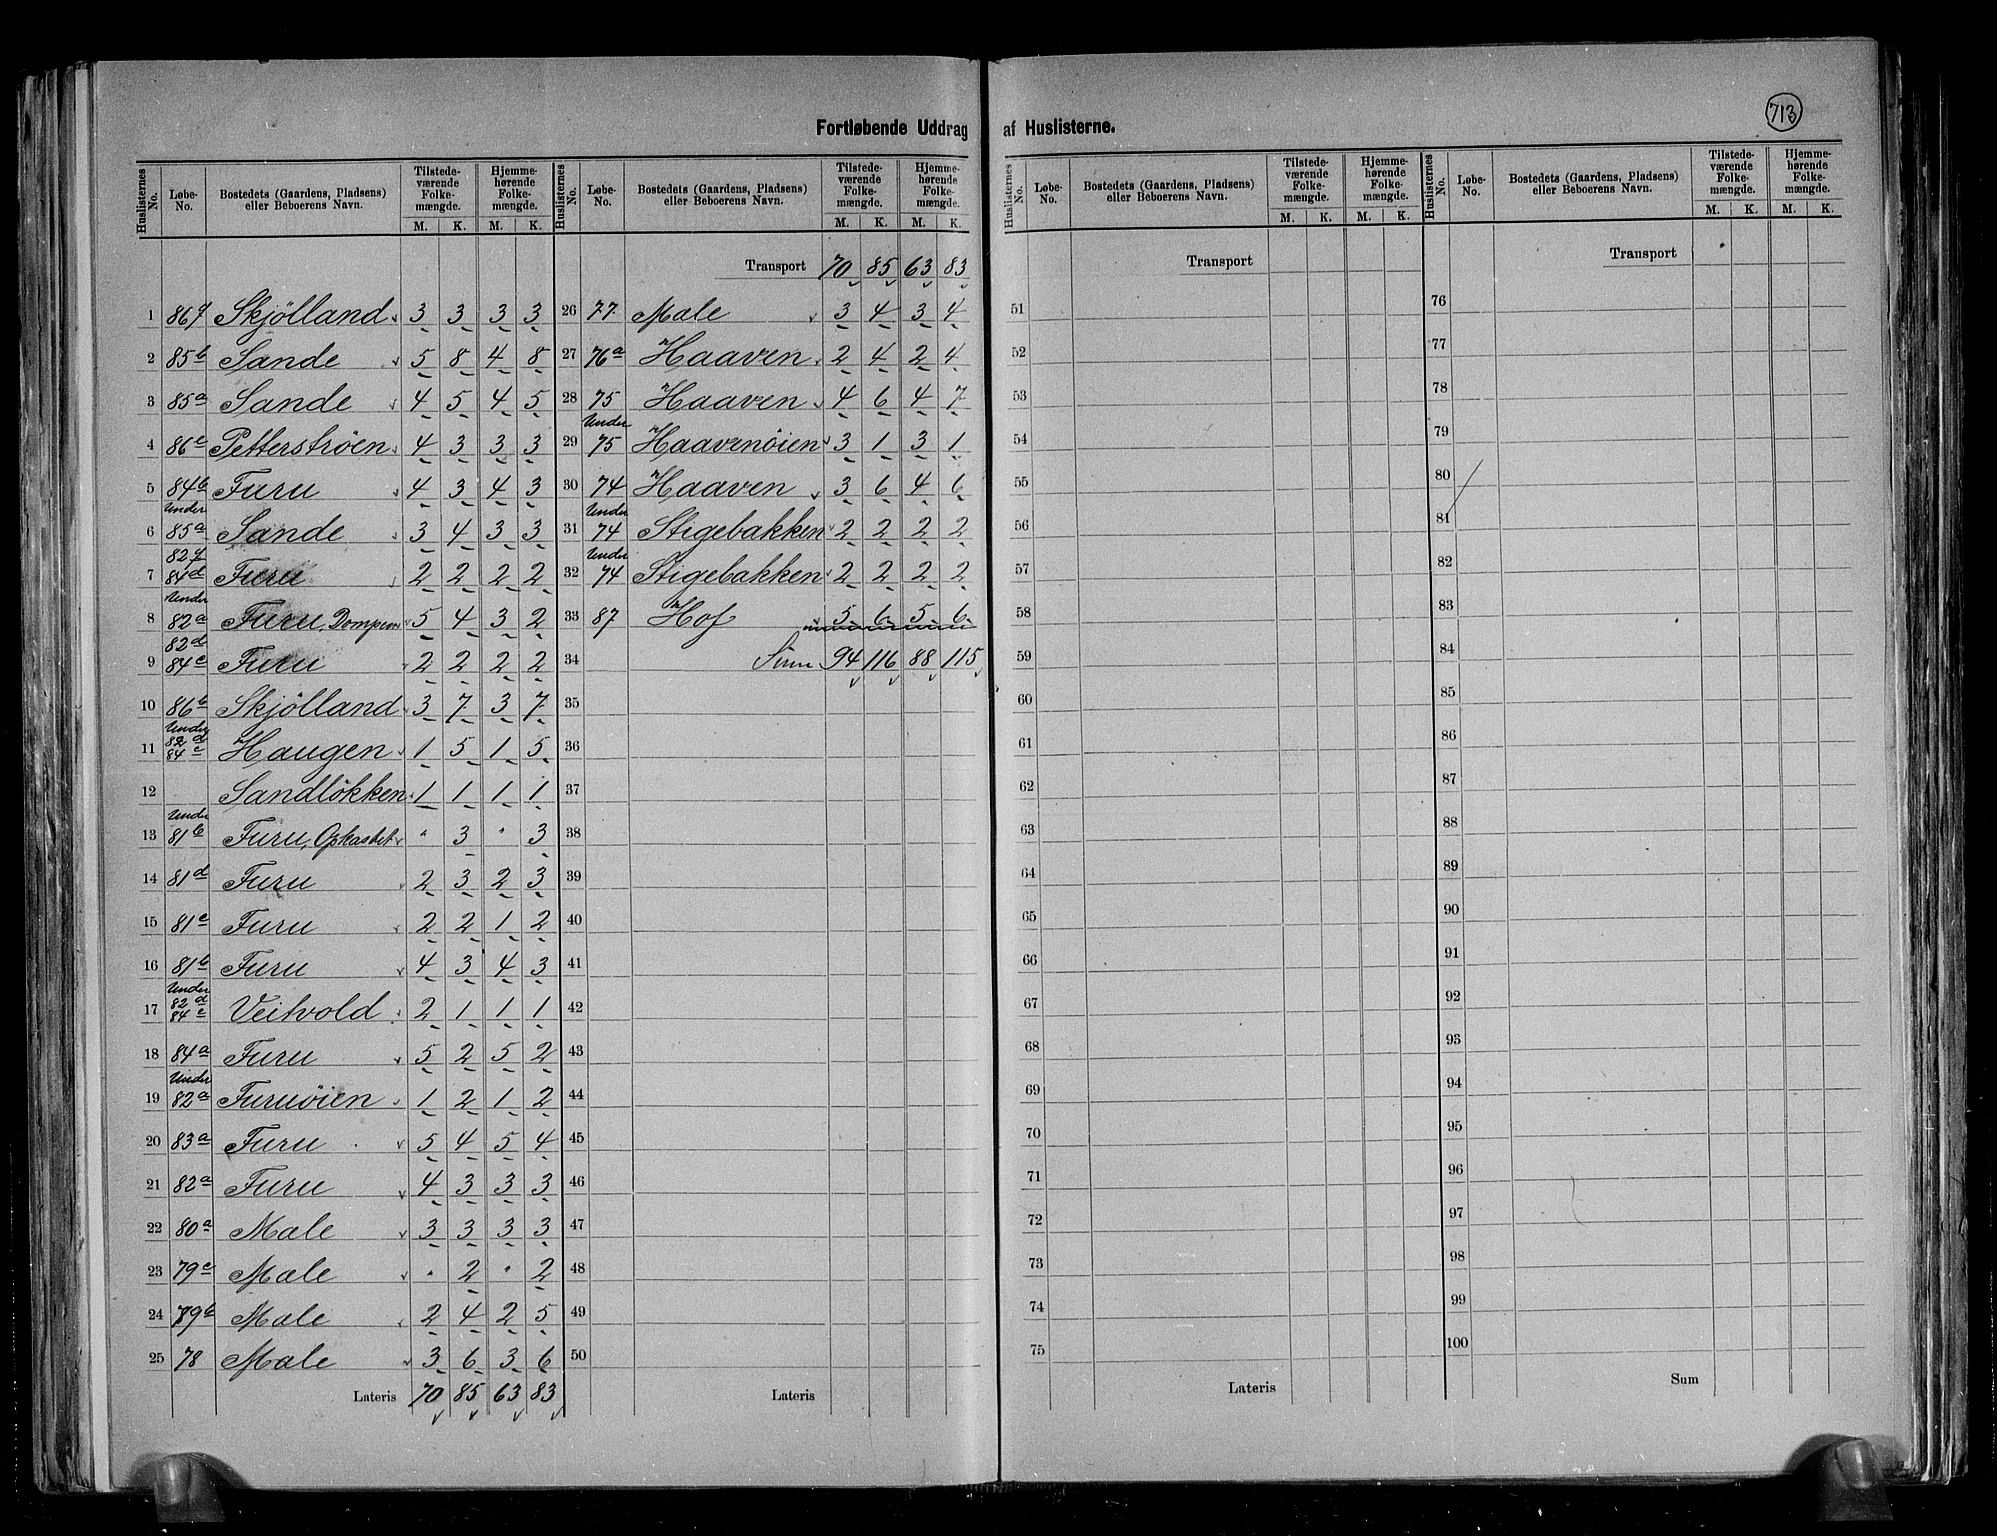 713
Fortløbende Uddrag af Huslisterne.
Huslisternes No. Løbe-No. Bostedets (Gaardens, Pladsens) eller Beboerens Navn. Tilstedeværende Folkemængde. M. K. Hjemmehørende Folkemængde. M. K.
1 Skjølland 3 3 3 3
2 85b Sande 5 8 4 8
3 85a Sande 4 5 4 5
4 86c Petterstrøen 4 3 3 3
5 84b Furu 4 3 4 3
6 Under 85a Sande 3 4 3 3
7 84d Furu 2 2 2 2
8 Under 82a Furu, Dompen 5 4 3 2
9 82d 84c Furu 2 2 2 2
10 86b Skjølland 3 7 3 7
11 Under 82d 84c Haugen 1 5 1 5
12 Sandløkken 1 1 1 1
13 Under 81b Furu, Opkastet " 3 " 3
14 81d Furu 2 3 2 3
15 81c Furu 2 2 1 2
16 81b Furu 4 3 4 3
17 Under 82d 84c Veitvold 2 1 1 1
18 84a Furu 5 2 5 2
19 Under 82a Furuøien 1 2 1 2
20 83a Furu 5 4 5 4
21 82a Furu 4 3 3 3
22 80a Male 3 3 3 3
23 79c Male " 2 " 2
24 79b Male 2 4 2 5
25 78 Male 3 6 3 6
Lateris 70 85 63 83
Huslisternes No. Løbe-No. Bostedets (Gaardens, Pladsens) eller Beboerens Navn. Tilstedeværende Folkemængde. M. K. Hjemmehørende Folkemængde. M. K.
Transport 70 85 63 83
26 77 Male 3 4 3 4
27 76a Haaven 2 4 2 4
28 75 Haaven 4 6 4 7
29 Under 75 Haavenøien 3 1 3 1
30 74 Haaven 3 6 4 6
31 Under 74 Stigebakken 2 2 2 2
32 Under 74 Stigebakken 2 2 2 2
33 87 Hof 5 6 5 6
34 Sum 94 116 88 115
35
36
37
38
39
40
41
42
43
44
45
46
47
48
49
50
Lateris
Huslisternes No. Løbe-No. Bostedets (Gaardens, Pladsens) eller Beboerens Navn. Tilstedeværende Folkemængde. M. K. Hjemmehørende Folkemængde. M. K.
Transport
51
52
53
54
55
56
57
58
59
60
61
62
63
64
65
66
67
68
69
70
71
72
73
74
75
Lateris
Huslisternes No. Løbe-No. Bostedets (Gaardens, Pladsens) eller Beboerens Navn. Tilstedeværende Folkemængde. M. K. Hjemmehørende Folkemængde. M. K.
Transport
76
77
78
79
80
81
82
83
84
85
86
87
88
89
90
91
92
93
94
95
96
97
98
99
100
Sum